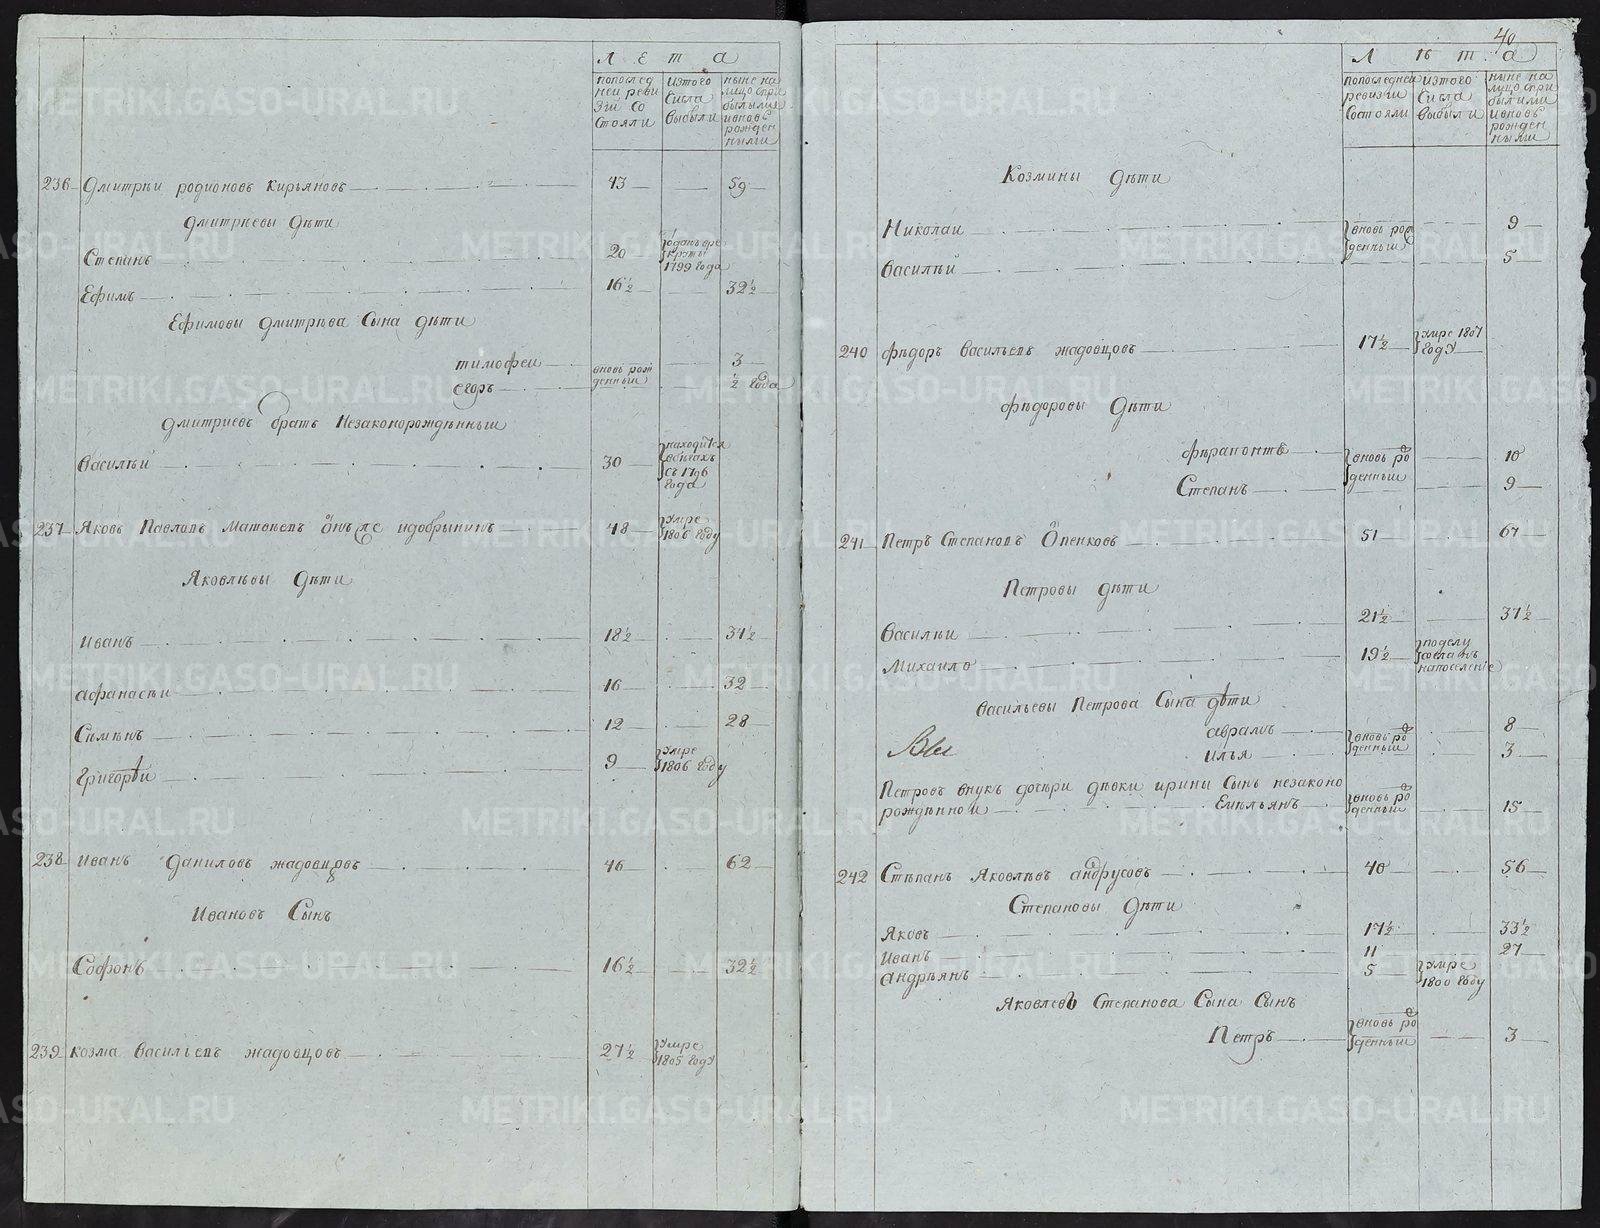 Лета
попослед
ней реви
зіи со
стояли
изтого
числа
выбыли
ныне на
лицо спри
былыми
ивновь
рожден
ными
236 Дмитрѣи родионовъ кирьяновъ 43 59
Дмитрѣевы дѣти
Степанъ 20 отданъ вре
круты
1799 года
Ефимъ 16½ 32½
Ефимовы дмитрѣва Сына дѣти
тимофеи вновь рож
денныи 3
егоръ ½ года
дмитриевъ братъ Незаконорождѣнныи
Василѣи 30 находитса
вбѣгахъ
съ 1796
года
237 Яковъ Павловъ 48 умре
1806 году
Яковлѣвы дѣти
иванъ 18½ 34½
афанасѣи 16 32
Сѣмѣнъ 12 28
Григорѣи 9 умре
1806 году
238 иванъ Даниловъ жадовцовъ 46 62
Ивановъ Сынъ
Софонъ 16½ 32½
239 козма Васильевъ жадовцовъ 27½ умре
1805 году
40
Лѣта
попоследнеи
ревизіи
состояли
изтого
числа
выбыли
ныне на
лицо спри
былими
ивновь
рожден
ными
Козмины дѣти
Николаи вновь рож
денныи 9
Василѣи 5
240 фѣдоръ Васильевъ жадовцовъ 17½ умре 1807
году
фѣдоровы Дѣти
фѣрапонтъ вновь ро
денныи 10
Степанъ 9
241 Петръ Степановъ Опенковъ 51 67
Петровы дѣти
Василѣи 21½ 37½
Михаило 19½ поделу
сосланъ
напоселенiе
Васильевы Петрова Сына дѣти
аврамъ вновь ро
денныи 8
илья 3
Петровъ внукъ дочѣри дѣвки ирины Сынъ незаконо
рождѣнной Емѣльянъ вновь ро
денныи 15
242 Стѣпанъ Яковлѣвъ андрусовъ 40 56
Степановы Дѣти
Яковъ 17½ 33½
Иванъ 11 27
андрѣянъ 5 умре
1800 году
Яковлевъ Степанова Сына Сынъ
Петръ вновь ро
денныи 3
METRIKI.GASO-URAL.RU